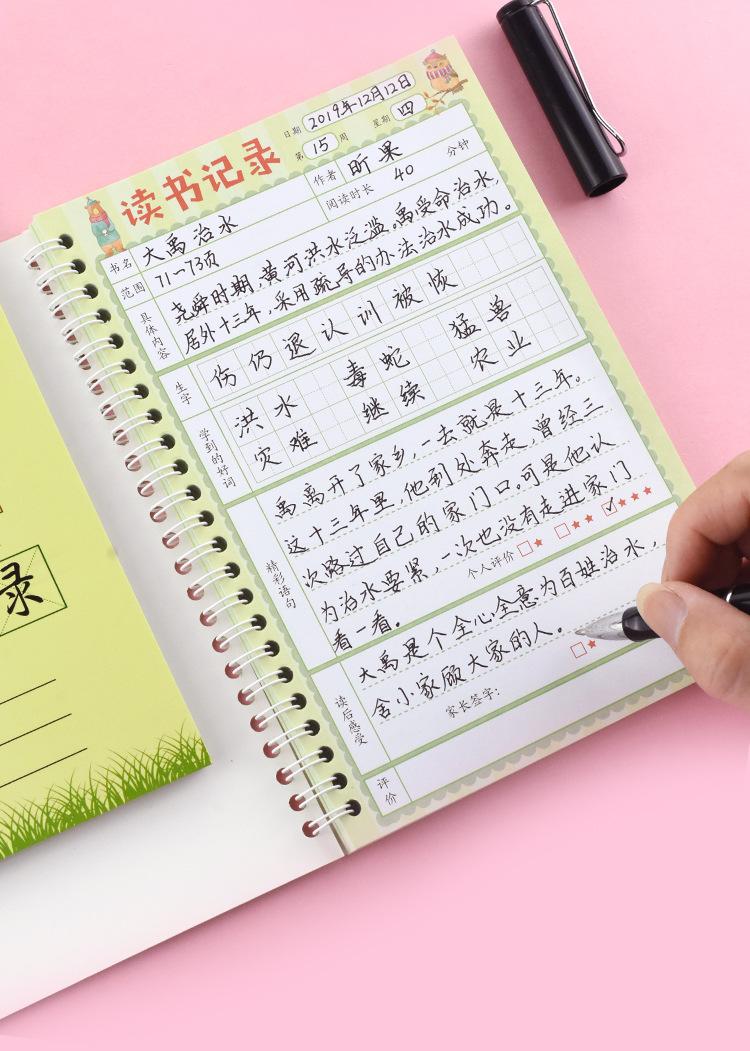 日期 2019年12月12日
第 15 周 星期 四
读书记录
书名 大禹治水 作者 昕果
范围 71—73页 阅读时长 40 分钟
具体内容
尧舜时期,黄河洪水泛滥。禹受命治水,
居外十三年,采用疏导的办法治水成功。
生字 伤 仍 退 认 训 被 恢
学到的好词
洪水 毒蛇 猛兽
灾难 继续 农业
精彩语句
禹离开了家乡,一去就是十三年。
这十三年里,他到处奔走,曾经三
次路过自己的家门口。可是他认
为治水要紧,一次也没有走进家门
看一看。
个人评价 □★ □★★ ☑★★★
读后感受
大禹是个全心全意为百姓治水,
舍小家顾大家的人。
评价
家长签字:
□★
录